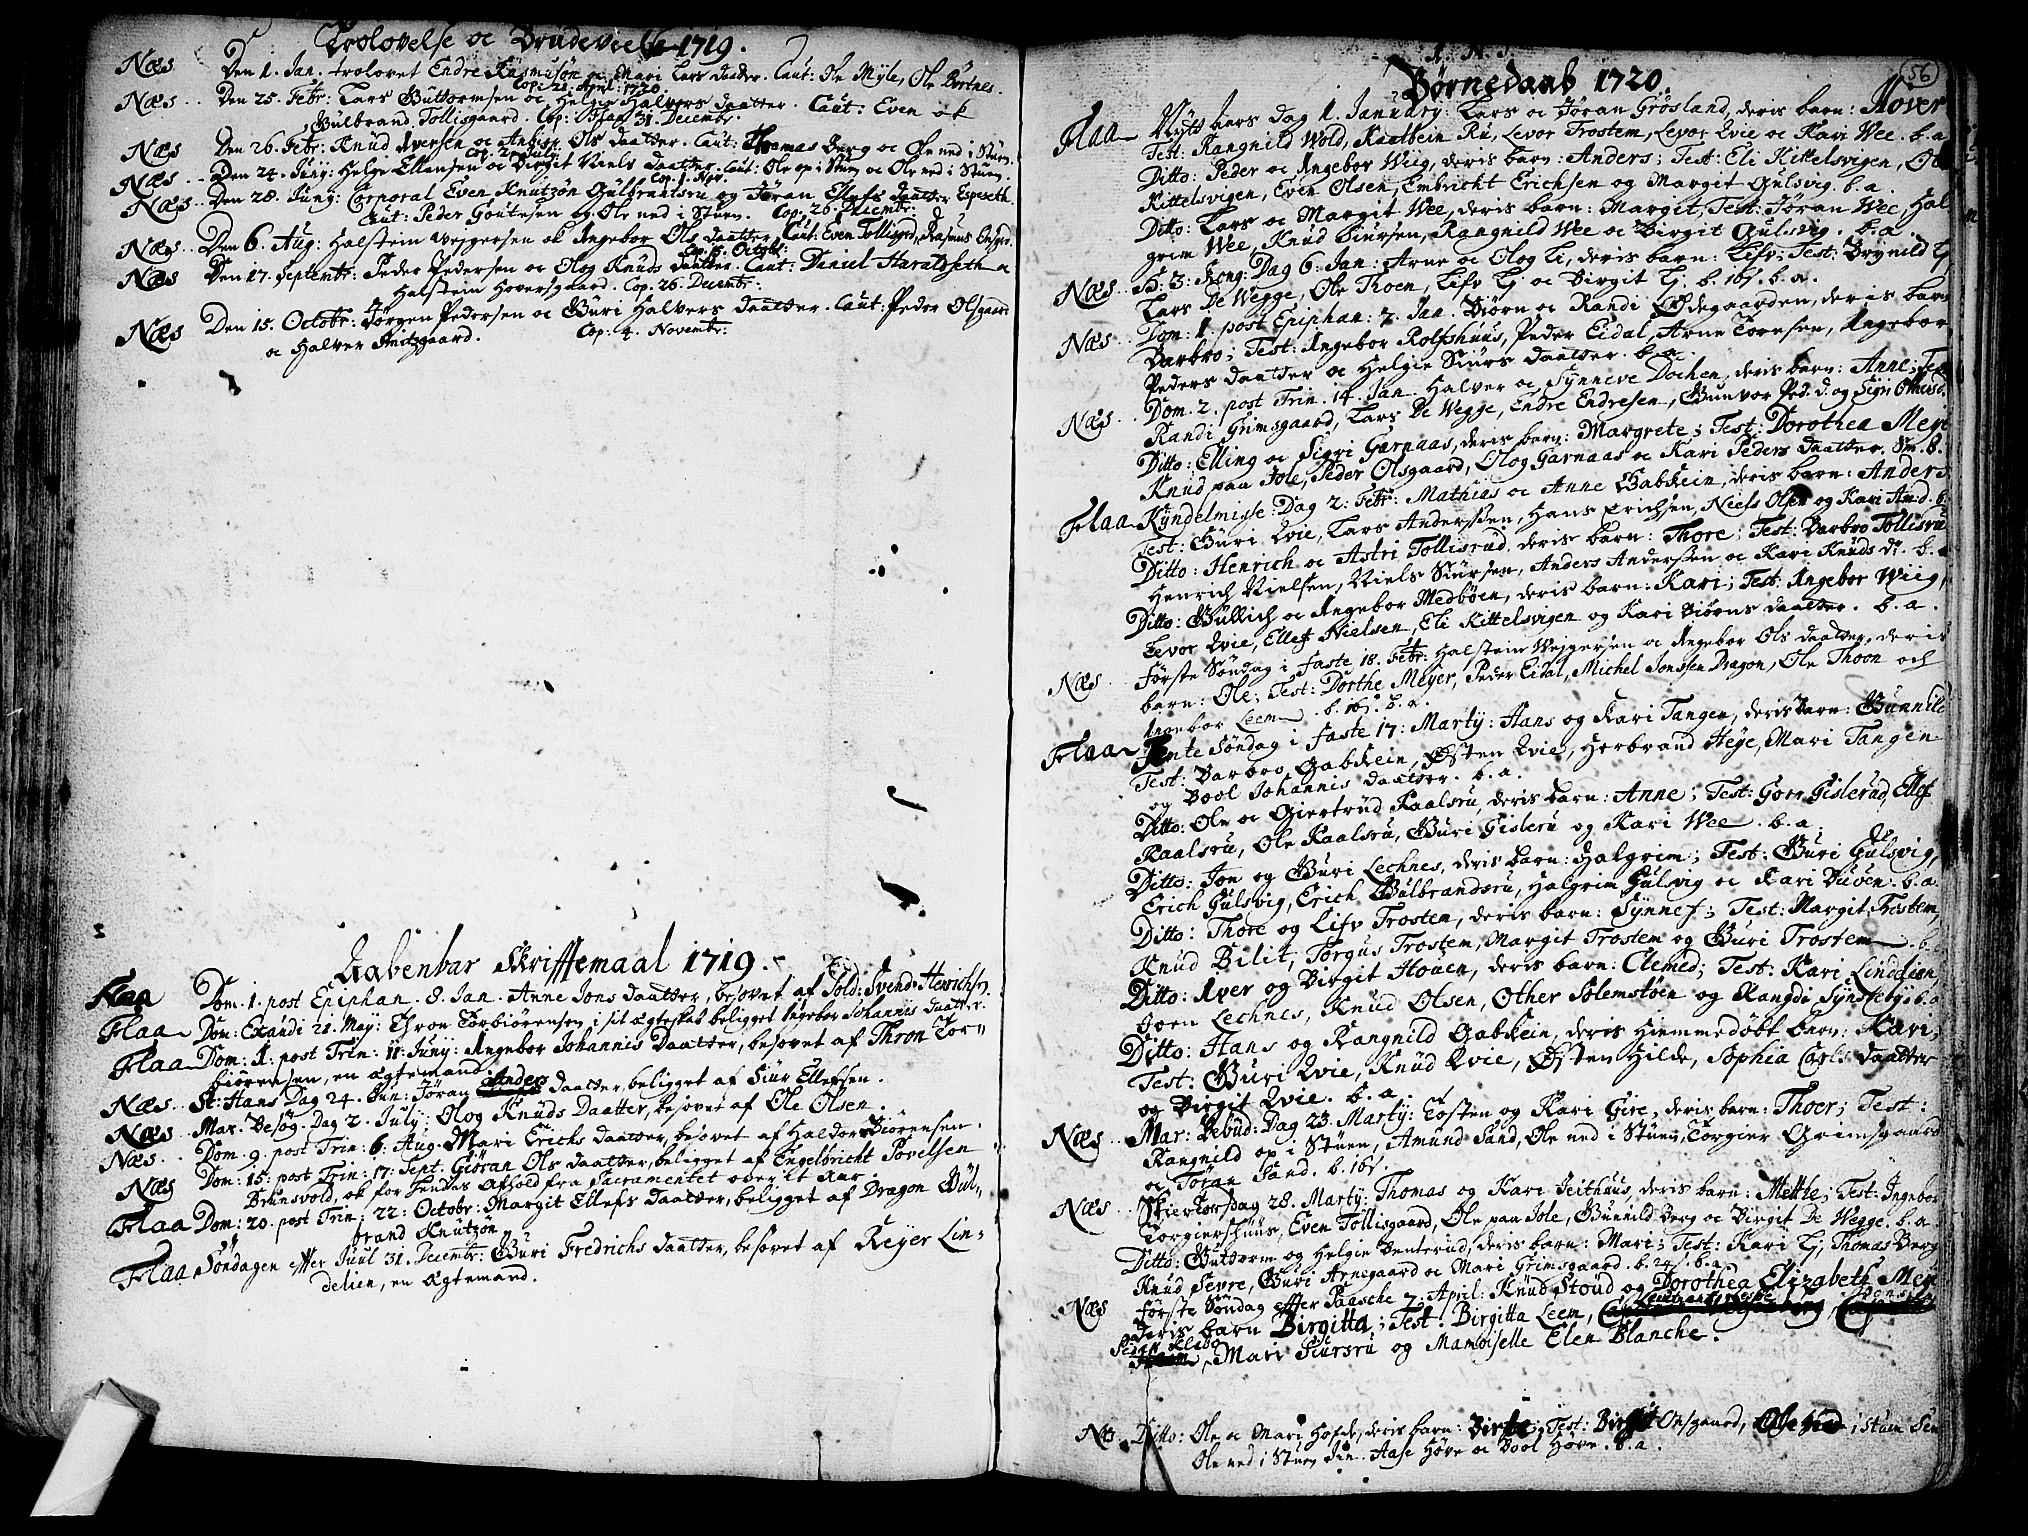 Trolovelse oc Brudevielse 1719.
Næs Den 1. Jan. trolovet Endre Rasmusøn oc Mari Lars daatter. Caut: Ole Myle, Ole Børtnes.
Cop: 21. April: 1720.
Næs Den 25. Febr: Lars Guttormsen oc Helgie Halvers daatter. Caut: Even ok
Gulbrand Tollisgaard. Cop: 31. Decembr.
Næs Den 26. Febr: Knud Iversen oc Ols daatter. Caut: Thomas Berg oc Ole ned i Stuen.
Næs Den 24. Juny: Helge Ellensen oc Birgit Neels daatter. Caut: Ole op i Stuen oc Ole ned i Stuen.
Cop. 1. Nov.
Næs Den 28. Juny: Corporal Even Knutzøn Gulbrantsru oc Jøran Ellefs daatter Espeseth.
Caut: Peder Goutesen og Ole ned i Stuen. Cop: 26 Decembr:
Næs Den 6. Aug: Halstein Weggersen ok Angebor Ols daatter, Caut: Even Tollisgrd,
Octobr:
Næs Den 17. Septembr: Peder Pedersen oc Olog Knuds daatter. Caut: Daniel Haraldseth oc
Halstein Hoversgaard. Cop: 26. Decembr:
Næs Den 15. Octobr: Jørgen Pedersen oc Guri Halvers daatter. Caut: Peder Olsgaard
oc Halver . Cop: 4. Novembr:
Aabenbar Skrifftemaal 1719.
Flaa Dom. 1. post Epiphan. 8. Jan. Anne Jons daatter, besovet af Sold: Svend Henrichsøn.
Flaa Dom: Exaudi 21. May: Thron Torbiørensen i sit ægteskab beligget Ingebor Johannis daatter.
Flaa Dom: 1: post Trin: 11: Juny: Angebor Johannis Daatter, besovet af Thron Tor=
biørensen, en ægtemand.
Næs St: Hans Dag 24. Jun: Jøran Anders daatter, beligget af Siur Ellefsen.
Næs Mar. Besøg. Dag 2. July: Olog Knuds Daatter, besovet af Ole Olsen.
Næs Dom. 9. post Trin: 6. Aug. Mari Erichs daatter, besovet af Haldor Biørensen.
Næs Dom: 15: post Trin: 17. Sept: Giøran Ols daatter, beligget af Engelbricht Povelsen
Brunsvold, ok for hendes afhold fra Sacramentet over it aar.
Flaa Dom: 20. post Trin: 22: Octobr: Margit Ellefs daatter, beligget af Dragon Gul=
brand Knutzøn
Flaa Søndagen effter Juul 31. Decembr: Guri Fredrichs daatter, besovet af Reyer Lin=
delien, en ægtemand.
56
I. N. J.
Børnedaab 1720.
Flaa Nytt Aars Dag 1. January: Lars oc Jøran Grøsland, deris barn: Hover
Test: Rangnild Wold, Kaalbein Ru, Levor Trostem, Levor Qvie oc Kari Wee. b. a
Ditto: Peder oc Angebor Wiig, deris barn: Anders; Test: Eli Kittelsvigen, Ole
Kittelsvigen, Even Olsen, Embricht Erichsen og Margit Gulsvig. b. a.
Ditto: Lars oc Margit Wee, deris barn: Margit, Test: Jøran Wee, Hal
grim Wee, Knud Siursen, Rangnild Wee oc Birgit Gulsvig. b. a.
Næs Sd. 3: Kong: Dag 6: Jan: Arne oc Olog Li, deris barn: Lifv; Test: Brynild Lj,
Lars De Wegge, Ole Thoen, Lifv Lj oc Birgit Lj. b. 16s. b. a.
Næs Dom: 1. post Epiphan: 7. Jan. Biørn oc Randi Ødegaarden, deris barn
Barbro; Test: Angebor Rolfshuus, Peder Eidal, Arne Toresen, Angebor
Peders daatter oc Helgie Siurs daatter. b. a.
Næs Dom. 2. post Trin. 14. Jan. Halver oc Synneve Dochen, deris barn: Anne; Test
Randi Grimsgaard, Lars De Wegge, Endre Endresen, Gunvor Ped. d. og Sigri
Ditto: Elling oc Sigri Garnaas, deris barn: Margrete; Test: Dorothea Meyer
Knud paa Jole, Peder Olsgaard, Olog Garnaas oc Kari Peders daatter. 8.
Flaa Kyndelmisse Dag 2: Febr: Mathias oc Anne Gabkein, deris barn: Anders
Test: Guri Qvie, Lars Anderssen, Hans Erichsen, Niels Olsen og Kari And. b.
Ditto: Henrich oc Astri Tollisrud, deris barn: Thore; Test: Barbro Tollisru
Henrich Nielsen, Niels Siursen, Anders Anderssen oc Kari Knuds dr. b. a
Ditto: Gullich oc Angebor Medbøen, deris barn: Kari; Test: Angebor Wiig,
Levor Qvie, Ellef Nielsen, Eli Kittelsvigen og Kari Biørns daatter. b. a.
Næs Første Søndag i Faste 18. Febr: Halstein Weggersen oc Angebor Ols daatter, deris
barn: Ole; Test: Dorthe Meyer, Peder Eidal, Michel Jonssen Dragon, Ole Thoon och
Angebor Leem. b. 16s. b. a.
Flaa Femte Søndag i Faste 17: Marty: Hans og Kari Tangen, deris barn: Gunnild
Test: Barbro Gabkein, Østen Qvie, Herbrand Heye, Mari Tangen
og Bool Johannis daatter. b. a.
Ditto: Ole oc Giertrud Kaalsru, deris barn: Anne; Test: Gorr Gislerud, Ellef
Kaalsru, Ole Kaalsru, Guri Gisleru og Kari Wee. b. a.
Ditto: Jon og Guri Lechnes, deris barn: Halgrim; Test: Guri Gulsvig,
Erich Gulsvig, Erich Gulbrandsru, Halgrim Gulsvig oc Kari Duven. b. a.
Ditto: Thore og Lifv Trosten, deris barn: Synnef; Test: Margit Trostem,
Knud Bilit, Torgus Trostem, Margit Trostem og Guri Trostem. b.
Ditto: Iver og Birgit Houen, deris barn: Clemed; Test: Kari Lindelien,
Joen Lechnes, Knud Olsen, Other Solemstøen og Rangdi Synsteby. b. a
Ditto: Hans og Rangnild Gabkein, deris hiemmedøbt barn: Kari;
Test: Guri Qvie, Knud Qvie, Østen Hilde, Sophia Carls daatter
og Birgit Qvie. b. a
Næs Mar: Bebud: Dag 23. Marty: Tosten og Kari Gire, deris barn: Thoer; Test:
Rangnild op i Stuen, Amund Sand, Ole ned i Stuen, Torgier Grimsgaard
oc Jøran Sand. b. 16s.
Næs Skiertorsdag 28. Marty: Thomas og Kari Jeithuus, deris barn: Mette; Test: Ingebor
Torgiershuus, Even Tollisgaard, Ole paa Jole, Gunnild Berg oc Birgit De Wegge. b. a
Ditto: Guttorm og Helgie Benterud, deris barn: Mari; Test: Kari Lj, Thomas Berg
Knud Sevre, Guri Arnegaard oc Mari Grimsgaard. b. 24s. b. a.
Næs Første Søndag effter Paasche 7. April: Knud Stoud og Dorothea Elizabeth Meyer
deris barn Birgitta; Test: Birgitta Leem,
Mari Siursru og Mamoiselle Elen Blanche.
Næs Ditto: Ole oc Mari Hofde, deris barn: Birte; Test: Birgit Olsgaard, Ole Ned i Stuen
Ole ned i Stuen Jun. Aase Høve oc Bool Høve. b. a.